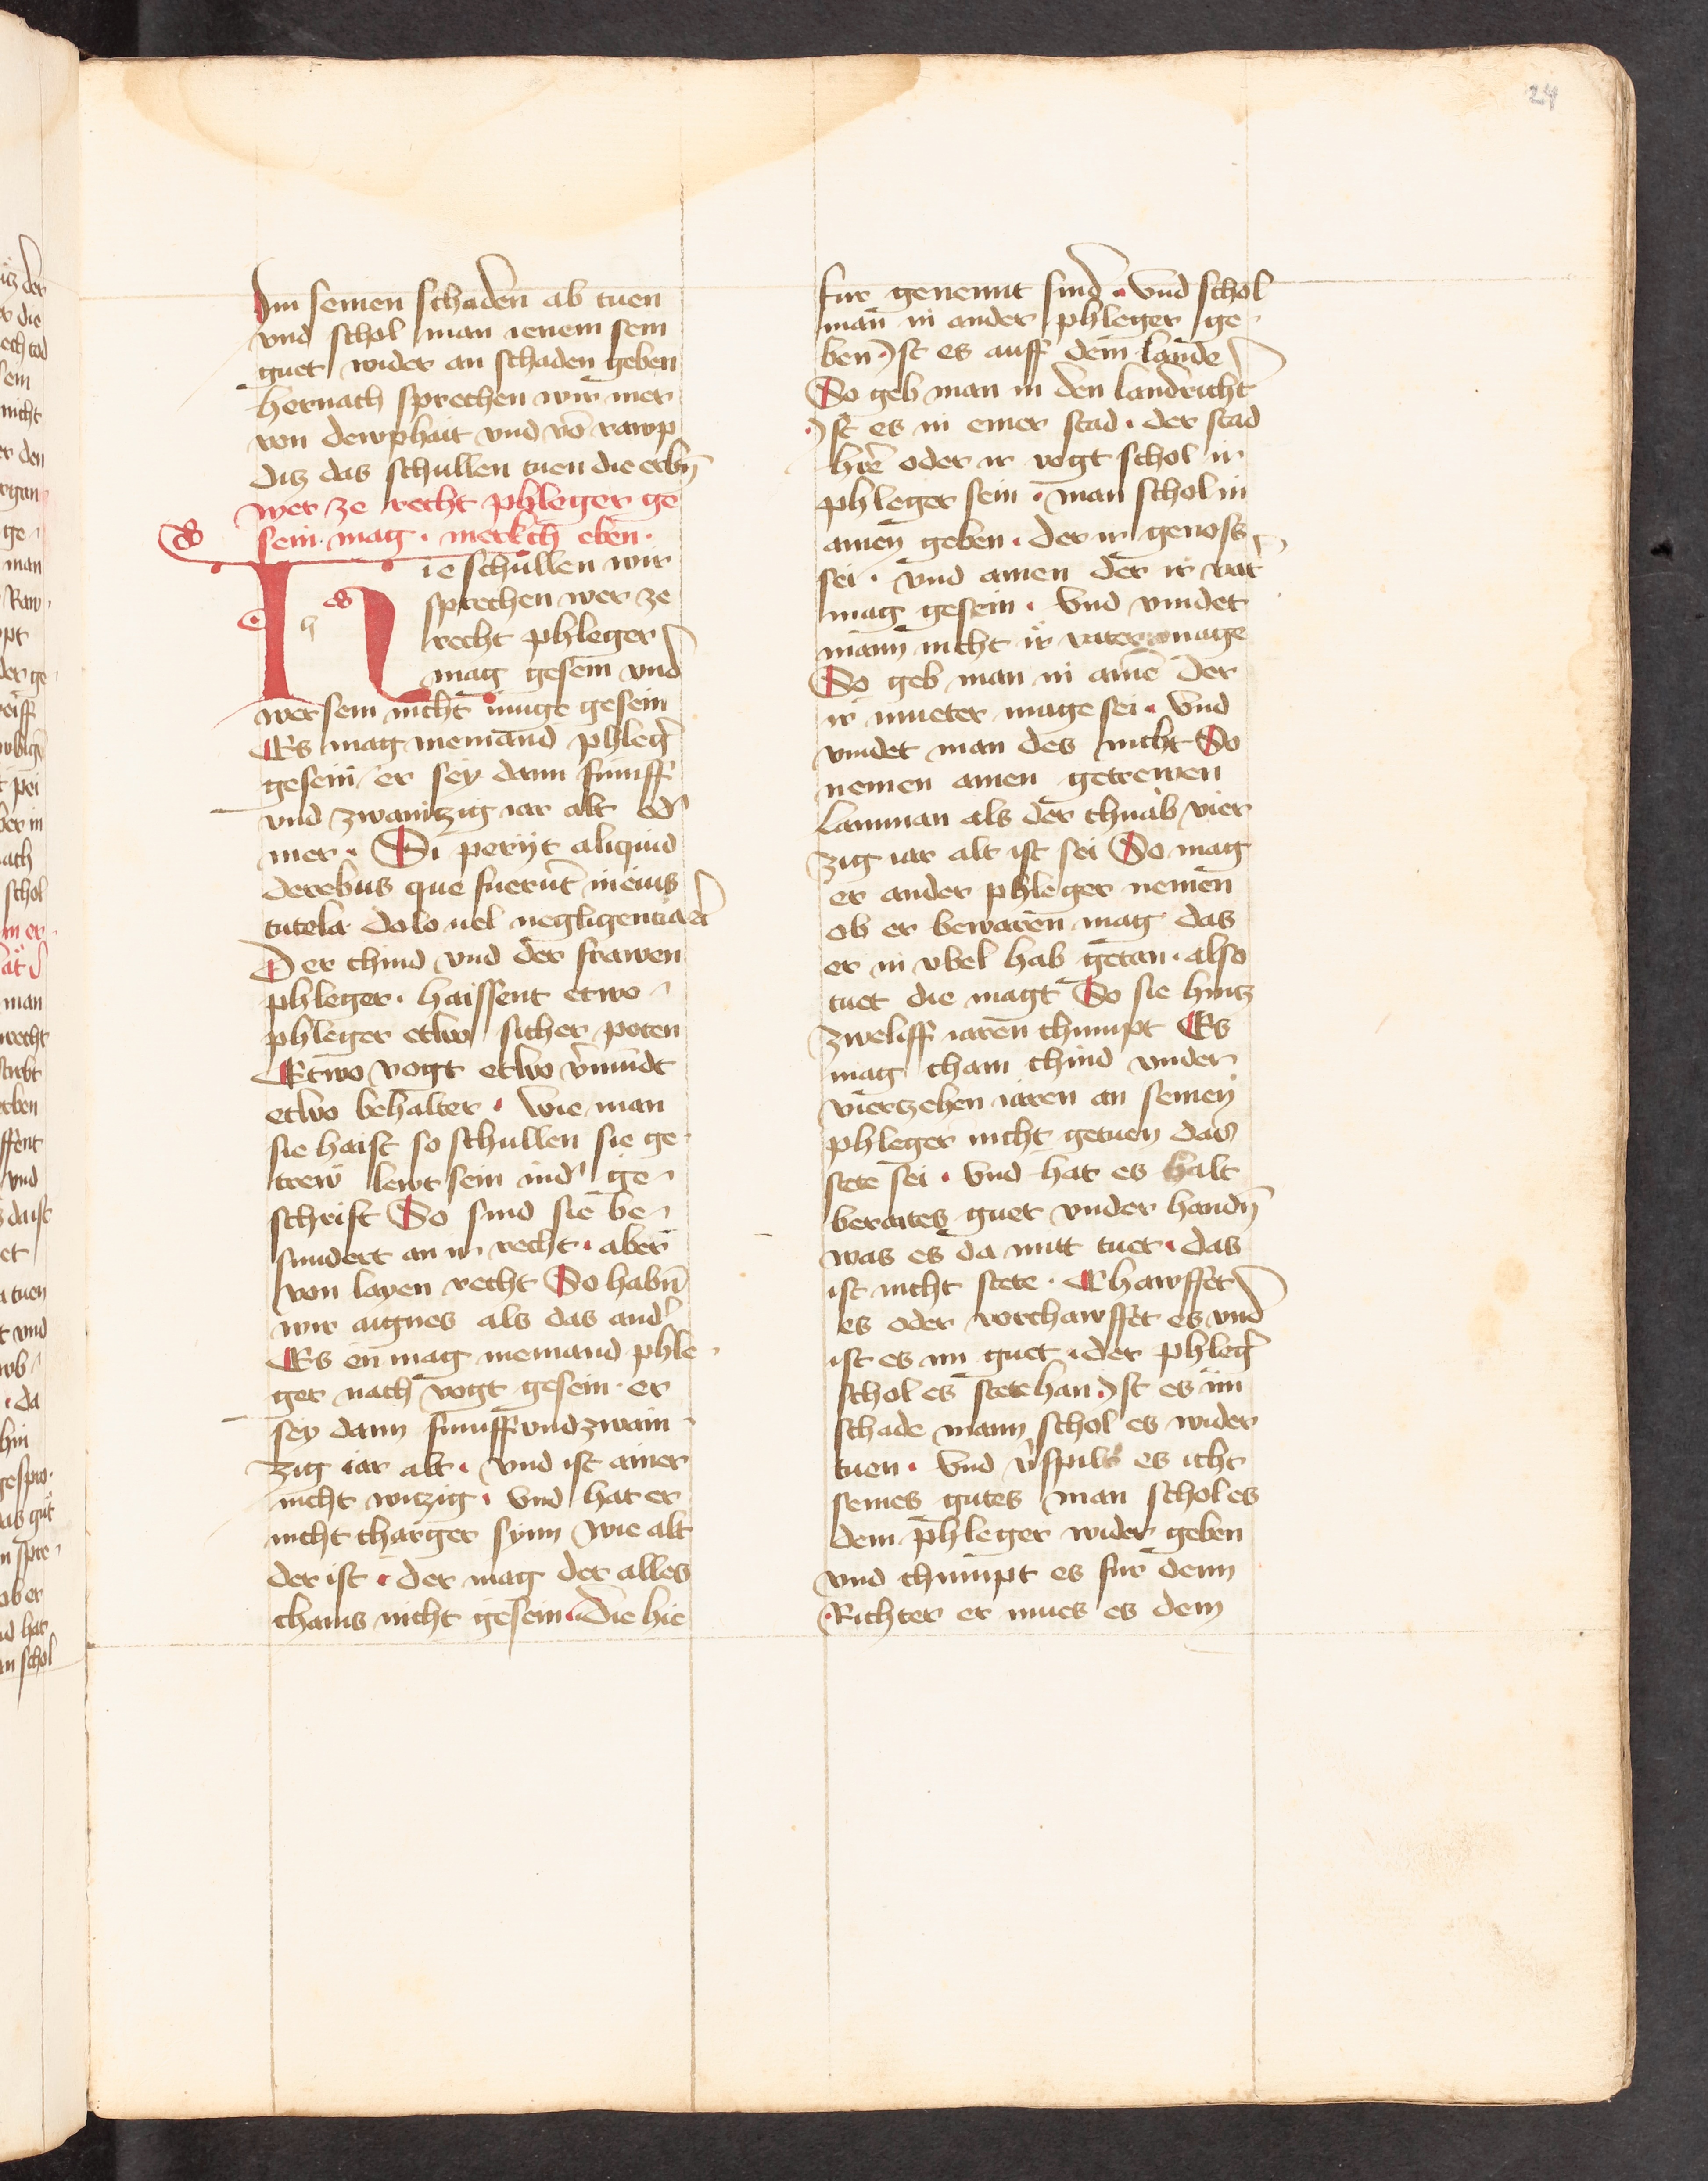 24
Im seinen schaden ab tuen
vnd schol man ienem sein
guet wider an schaden geben
hernach sprechen wir mer
von dewphait vnd võ rawp
ditz das schullen tuen die erbn̄
wer ze recht phleger ge
sein mag · merkch eben ·
Hie schullen wir
sprechen wer ze
recht phleger
mag gesein vnd
wer sein nicht muge gesein
Es mag niemand phleg̉
gesein er sey dann fünff
vnd zwaintzig iar alt od̉
mer · Si perijt aliquid
derebus que fuerūt in eius
tutela dolo uel negligentia et̉
Der chind vnd der frawen
phleger · haissent etwo
phleger etwo sicher poten
Etwo vogt etwo v̉mūdt
etwo behalter · wie man
sie haist so schullen sie ge-
trew lewt sein ind̉ ge-
schrift So sind sie be-
sundert an ir recht · aber
von layen recht So habn̄
wir aignes als das and̉
Es en mag niemand phle-
ger nach vogt gesein · er
sey dann funiff vnd zwain-
zig iar alt · vnd ist ainer
nicht witzig · vnd hat er
nicht charger synn wie alt
der ist · der mag der alles
chains nicht gesein · die hie
fur genennt sind · vnd schol
man in ander phleger ge-
ben · Ist es auff dem lande
So geb man in den landricht̉
Ist es in einer stad · der stad
hr̄e oder ir vogt schol ir
phleger sein · man schol in
ainen geben · der ir genoss
sei · vnd ainen der ir vat̉
mag gesein · vnd vindet
mann nicht ir vater mage
So geb man in ainē der
ir mueter mage sei · vnd
vindet man des nicht So
nemen ainen getrewen
lanman als der chnab vier
zig iar alt ist sei So mag
er ander phleger nemen
ob er bewaren mag das
er in vbel hab getan · also
tuet die magt So sie hintz
zweliff iaren chumpt Es
mag chain chind vnder
viertzehen iaren an seinen
phleger nicht getuen das
stete sei · vnd hat es halt
beraites guet vnder handn̄
was es da mitt tuet · das
ist nicht stete · Chawffet
es oder vorchawffet es vnd
ist es im guet · der phleg̉
schol es stete han · Ist es im
schade mann schol es wider
tuen · vnd v̉spilt es icht
seines gutes man schol es
dem phleger wider geben
vnd chumpt es fur denn
Richter er mues es dem